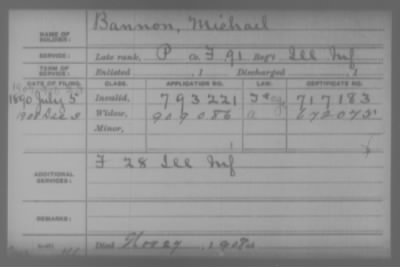 NAME OF SOLDIER: Bannon, Michail
SERVICE: Late rank, P Co. F 91 Reg't Ill Inf
TERM OF SERVICE: Enlisted , 1 Discharged , 1
DATE OF FILING. CLASS. APPLICATION NO. LAW. CERTIFICATE NO.
1890 July 5 Invalid, 793221 717183
1908 Widow, 909086 672075
Minor,
ADDITIONAL SERVICES: F 28 Ill Inf
REMARKS:
Died 1908